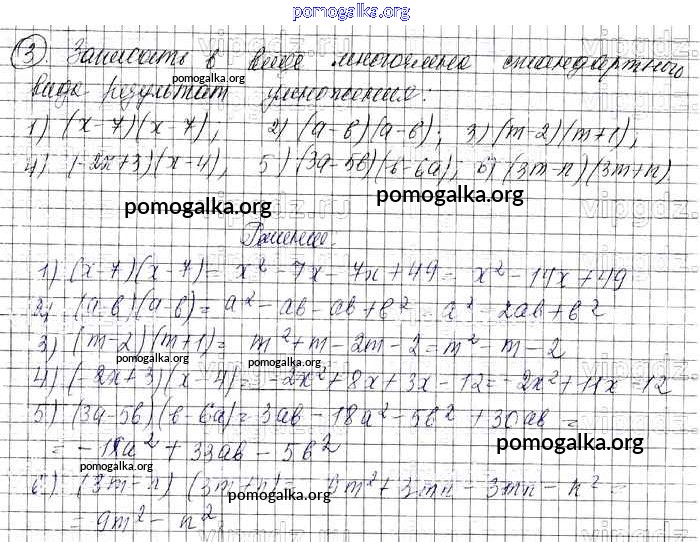 pomogalka.org
3. Записать в виде многочлена стандартного
вида результат умножения:
1) (x-7)(x-7), 2) (a-b)(a-b); 3) (m-2)(m+1),
4) (-2x+3)(x-4), 5) (3a-5b)(b-6a), 6) (3m-n)(3m+n)
pomogalka.org
pomogalka.org
Решение.
1) (x-7)(x-7) = x² - 7x - 7x + 49 = x² - 14x + 49
2) (a-b)(a-b) = a² - ab - ab + b² = a² - 2ab + b²
3) (m-2)(m+1) = m² + m - 2m - 2 = m² - m - 2
pomogalka.org
4) (-2x+3)(x-4) = -2x² + 8x + 3x - 12 = -2x² + 11x - 12
5) (3a-5b)(b-6a) = 3ab - 18a² - 5b² + 30ab =
= -18a² + 33ab - 5b²
pomogalka.org
pomogalka.org
6) (3m-n)(3m+n) = 9m² + 3mn - 3mn - n² =
pomogalka.org
= 9m² - n²